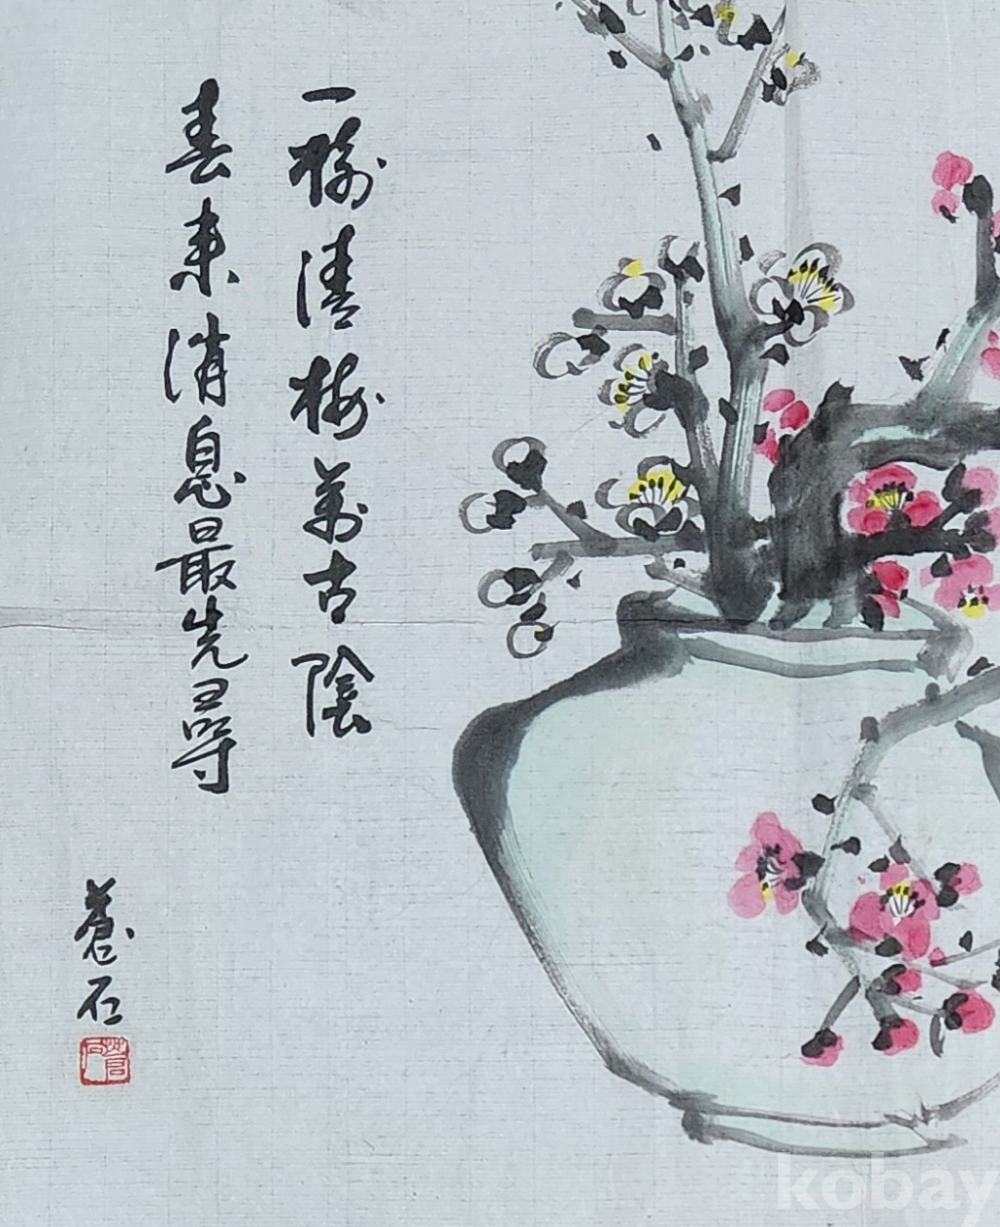 一樹清梅萬古陰
春来消息最先尋
蒼石
蒼石
kobay